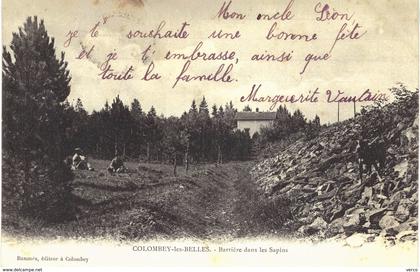 Mon oncle Léon
je te souhaite une bonne fête
et je t'embrasse, ainsi que
toute la famille.
Marguerite Vautain
COLOMBEY-les-BELLES. - Barrière dans les Sapins
éditeur à Colombey